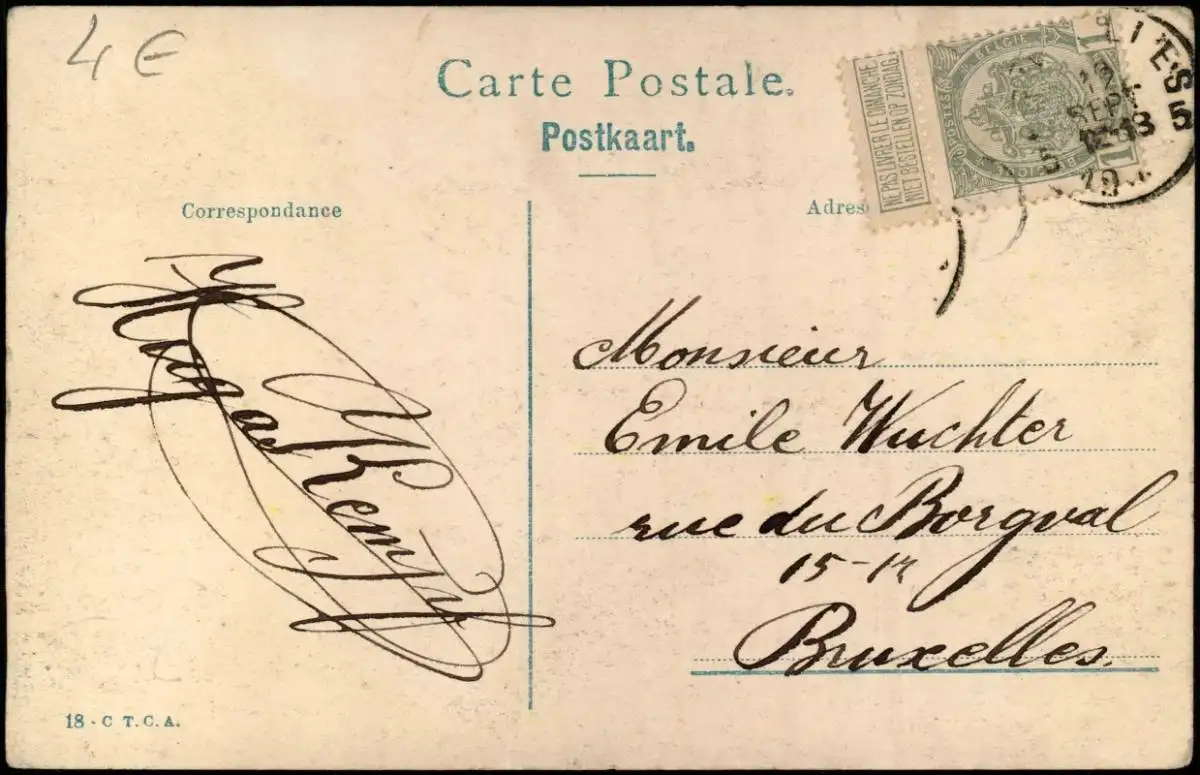 4€
Carte Postale.
Postkaart.
Correspondance
Adres
NE PAS LIVRER LE DIMANCHE
NIET BESTELLEN OP ZONDAG
BELGIE
POSTES
1
1
SEPT
5
5
Monsieur
Emile Wuchter
rue du Borgval
15-17
Bruxelles.
18 - C T. C. A.